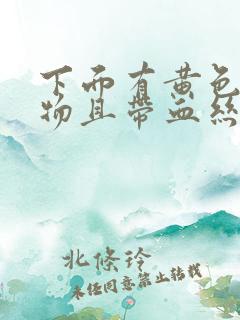 下面有黄色
物且带血絲
北條玲
未经同意禁止转载